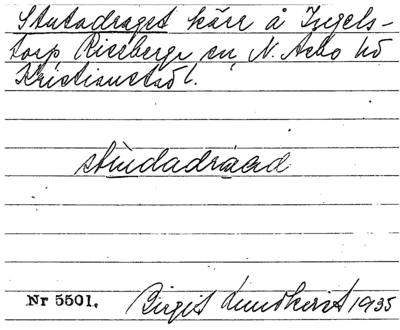 Stutadraget kärr å Ingels-
torp Riseberga sn, N. Åsbo hd
Kristianstads l.
stu̲dadra̲ad
Nr 5501. Birgit Lundkvist 1935